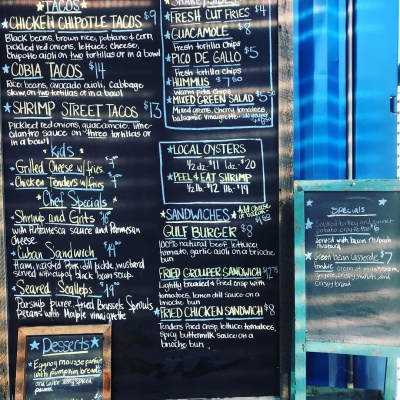 TACOS
CHICKEN CHIPOTLE TACOS $9
Black beans, brown rice, potato & corn,
pickled red onions, lettuce, cheese,
chipotle aioli on two tortillas or in a bowl
COBIA TACOS $14
Rice, beans, avocado aioli, cabbage
slaw on two tortillas or in a bowl
SHRIMP STREET TACOS $13
Pickled red onions, guacamole, lime
cilantro sauce on three tortillas or
in a bowl
Kids
Grilled Cheese w/ fries
Chicken Tenders w/ fries
Chef Specials
Shrimp and Grits
with Puttanesca sauce and Parmesan
Cheese
Cuban Sandwich
Ham, roasted Pork, dill pickle, mustard
served with cup black bean soup
Seared Scallops
Parsnip puree, fried Brussels Sprouts
pecans with Maple vinaigrette
Desserts
Eggnog mousse parfait
with pumpkin bread
FRESH CUT FRIES $4
GUACAMOLE $8
Fresh tortilla chips
PICO DE GALLO $5
Fresh tortilla chips
HUMMUS
Warm pita chips
MIXED GREEN SALAD
Mixed greens, cherry tomatoes
balsamic vinaigrette
LOCAL OYSTERS
1/2 dz. $11 1 dz. $20
PEEL & EAT SHRIMP
1/2 lb. $12 1 lb. $19
SANDWICHES
Add cheese
GULF BURGER $8
100% natural beef, lettuce
tomato, garlic aioli on a brioche
bun
FRIED GROUPER SANDWICH
Lightly breaded & fried crisp with
tomatoes, lemon dill sauce on a
brioche bun
FRIED CHICKEN SANDWICH $8
Tenders fried crisp, lettuce, tomatoes,
spicy buttermilk sauce on a
brioche bun
Specials
$6
Green bean casserole $7